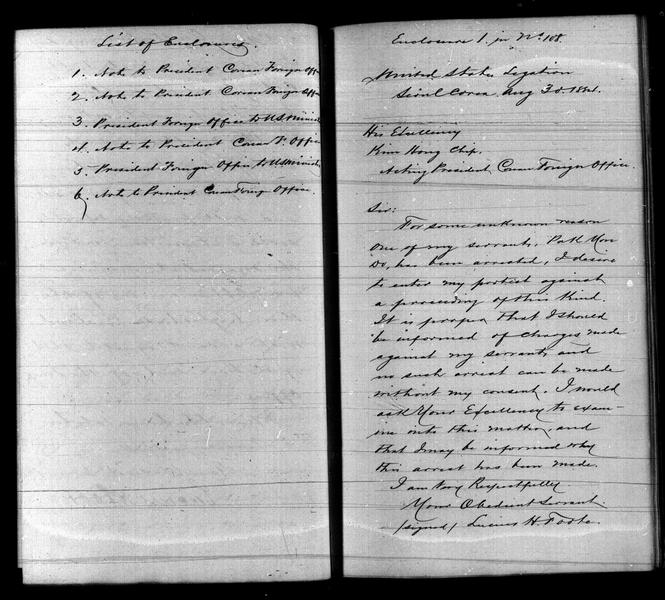 List of Enclosures.
1. Note to President Corean Foreign Office
2. Note to President Corean Foreign Office
3. President Foreign Office to U.S. Minister
4. Note to President Corean F. Office
5. President Foreign Office to U.S. Minister
6. Note to President Corean Foreign Office.
Enclosure 1. in No 108.
United States Legation
Seoul Corea, Aug 30. 1884.
His Excellency
Kim Hong Chip.
Acting President, Corean Foreign Office.
Sir:
For some unknown reason
one of my servants, Pak Yon
Do, has been arrested, I desire
to enter my protest against
a proceeding of this kind.
It is proper that I should
be informed of charges made
against my servants, and
no such arrest can be made
without my consent. I would
ask Your Excellency to exam-
ine into this matter, and
that I may be informed why
this arrest has been made.
I am Very Respectfully
Your Obedient Servant.
(signed) Lucius H. Foote.